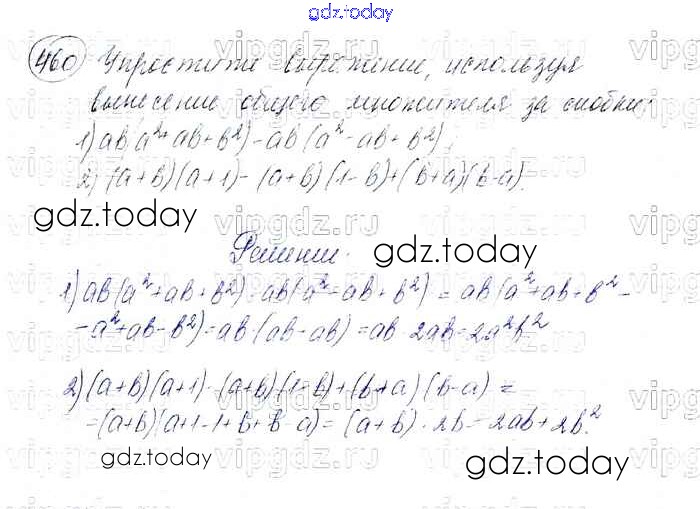 gdz.today
460 Упростите выражение, используя
вынесение общего множителя за скобки:
1) ab(a²+ab+b²)-ab(a²-ab+b²)
2) (a+b)(a+1)-(a+b)(1-b)+(b+a)(b-a).
gdz.today
gdz.today
Решение.
1) ab(a²+ab+b²)-ab(a²-ab+b²) = ab(a²+ab+b²-
-a²+ab-b²)=ab·(ab-ab)=ab 2ab=2a²b²
2) (a+b)(a+1)-(a+b)(1-b)+(b+a)(b-a) =
=(a+b)(a+1-1+b+b-a)=(a+b)·2b=2ab+2b².
gdz.today
gdz.today
vipgdz.ru